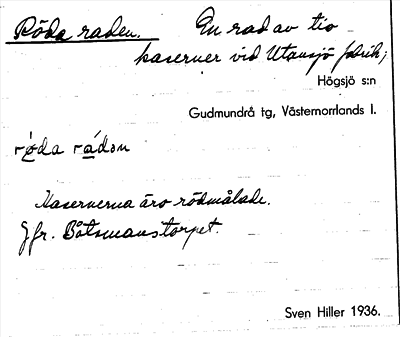 Röda raden. En rad av tio
kaserner vid Utansjö fabrik;
Högsjö s:n
Gudmundrå tg, Västernorrlands l.
rø̀da rádən
Kasernerna äro rödmålade.
Jfr. Båtsmanstorpet.
Sven Hiller 1936.